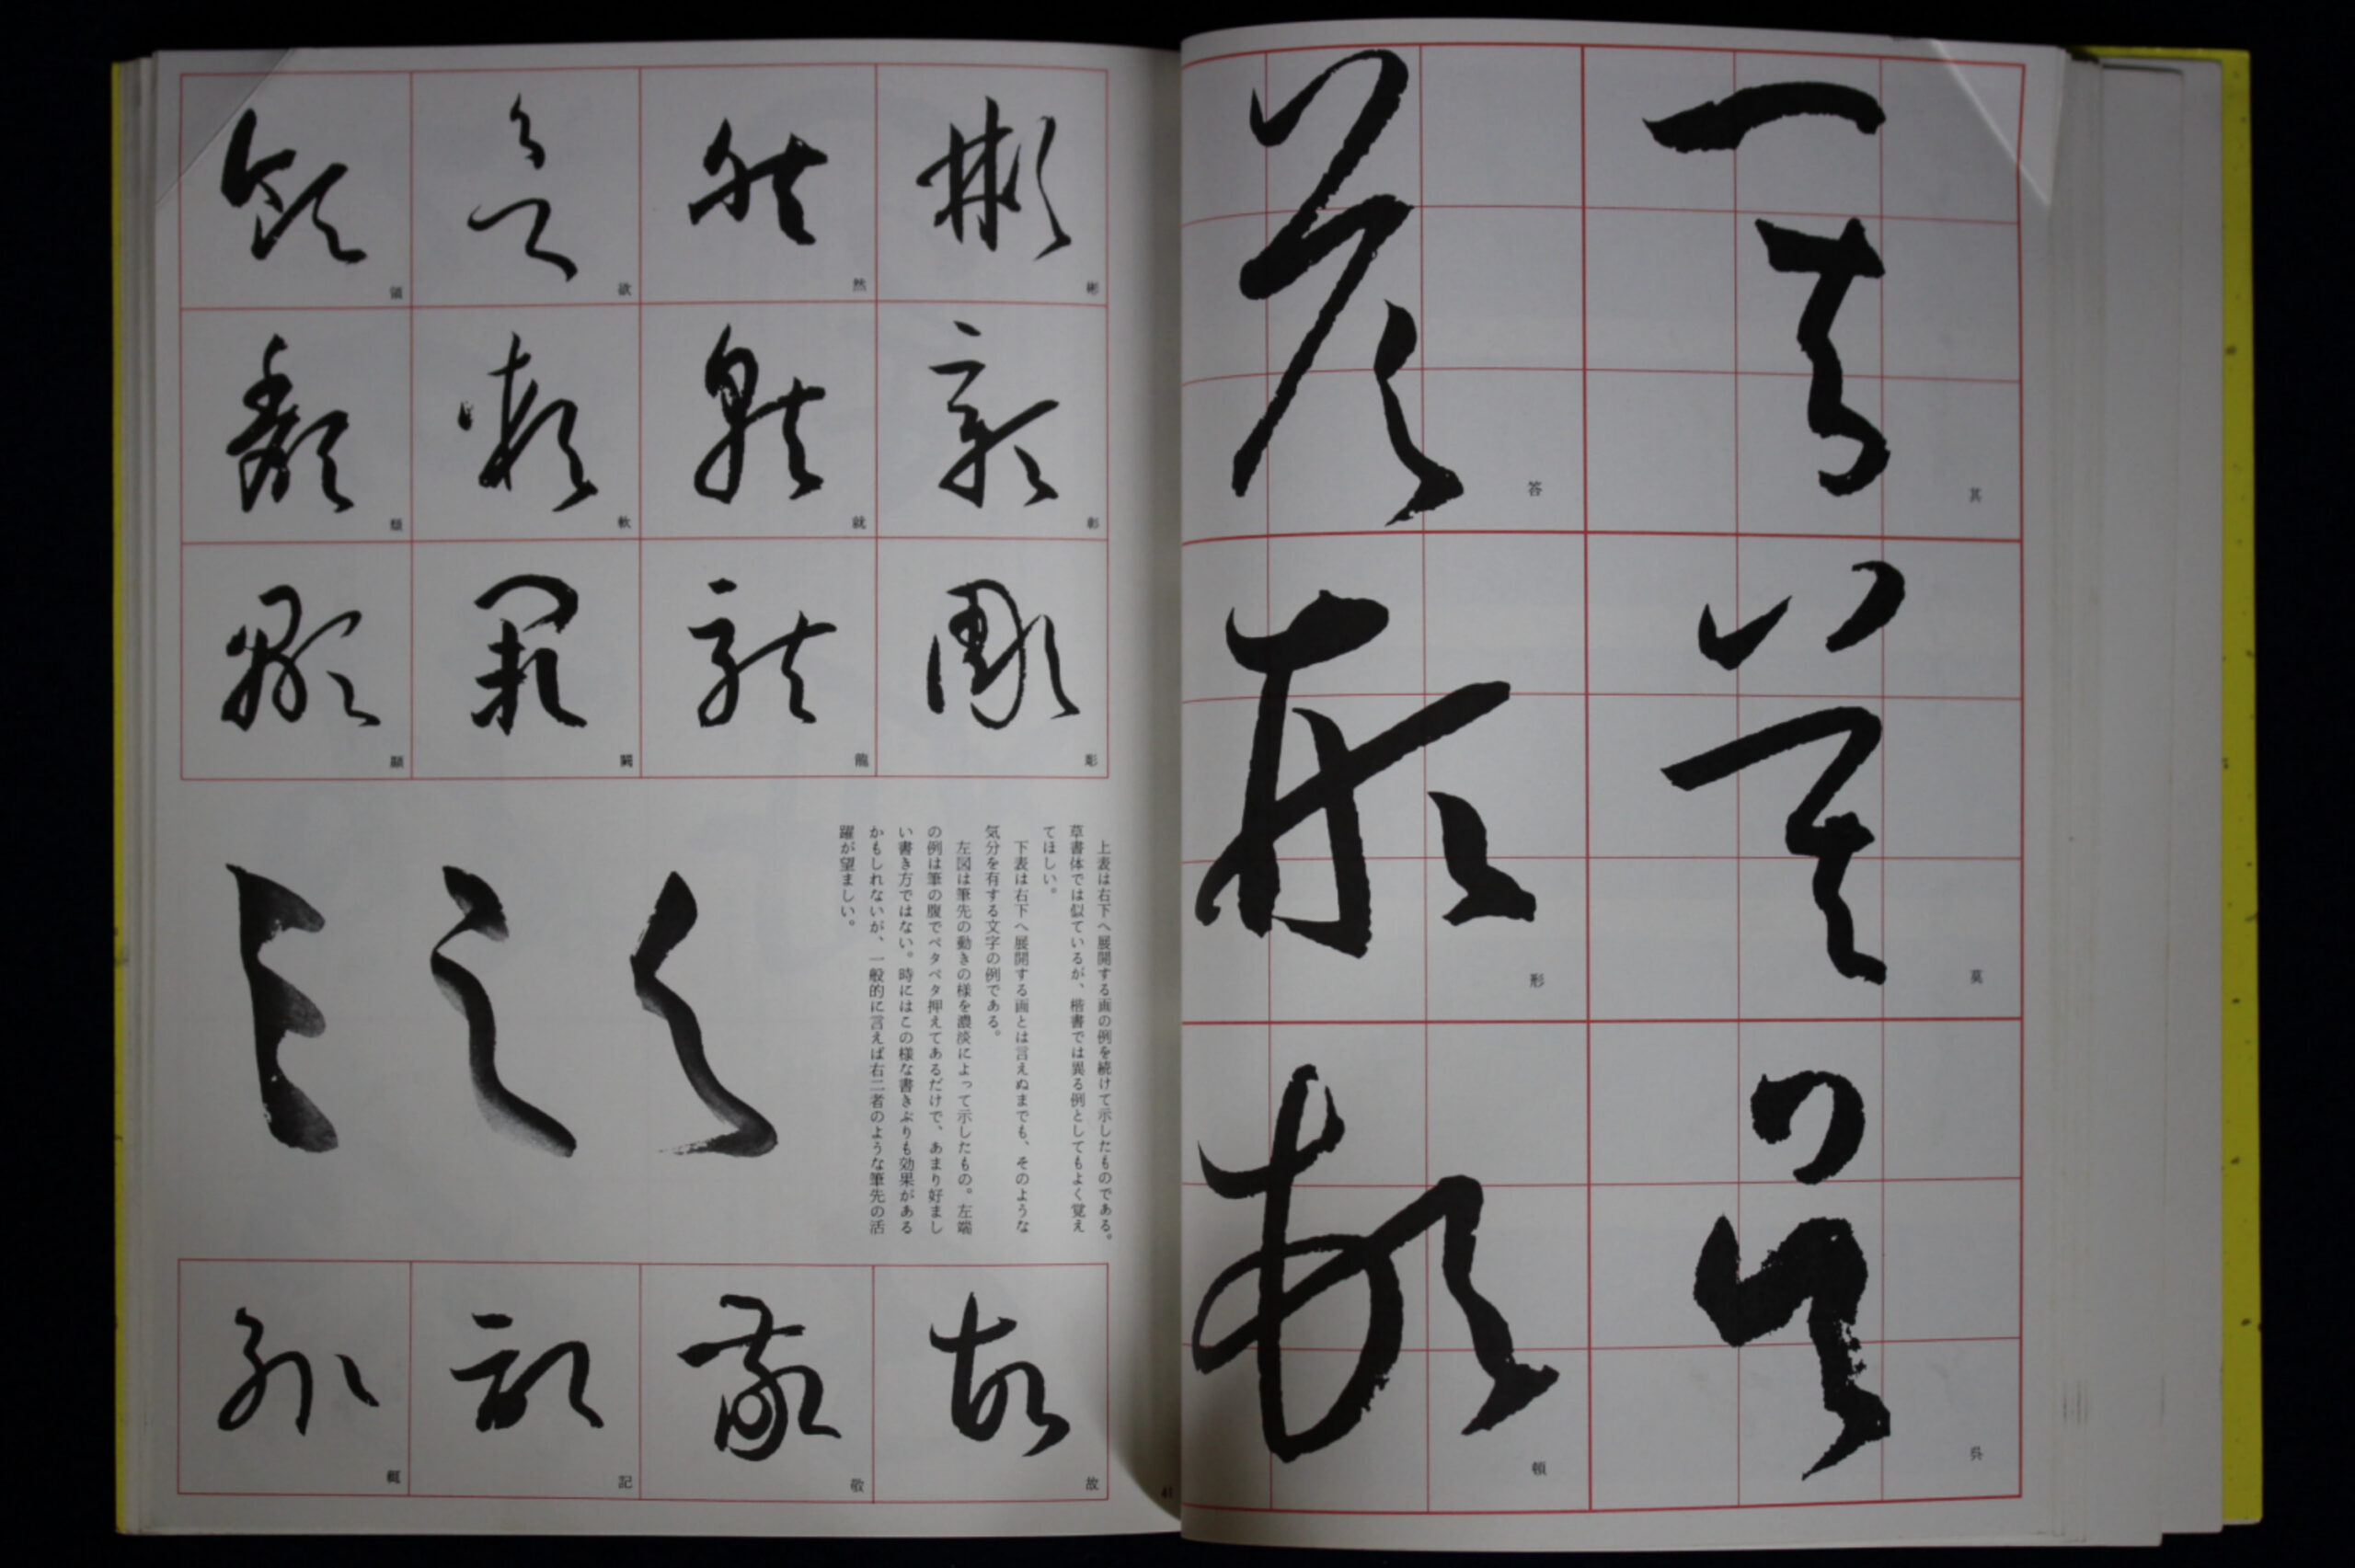 其
莫
呉
答
形
頓
彬
彰
彫
然
就
龍
欲
軟
領
類
上表は右下へ展開する画の例を続けて示したものである。
草書体では似ているが、楷書では異る例としてもよく覚え
てほしい。
下表は右下へ展開する画とは言えぬまでも、そのような
気分を有する文字の例である。
左図は筆先の動きの様を濃淡によって示したもの。左端
の例は筆の腹でペタペタ押えてあるだけで、あまり好まし
い書き方ではない。時にはこの様な書きぶりも効果がある
かもしれないが、一般的に言えば右二者のような筆先の活
躍が望ましい。
故
敬
記
41